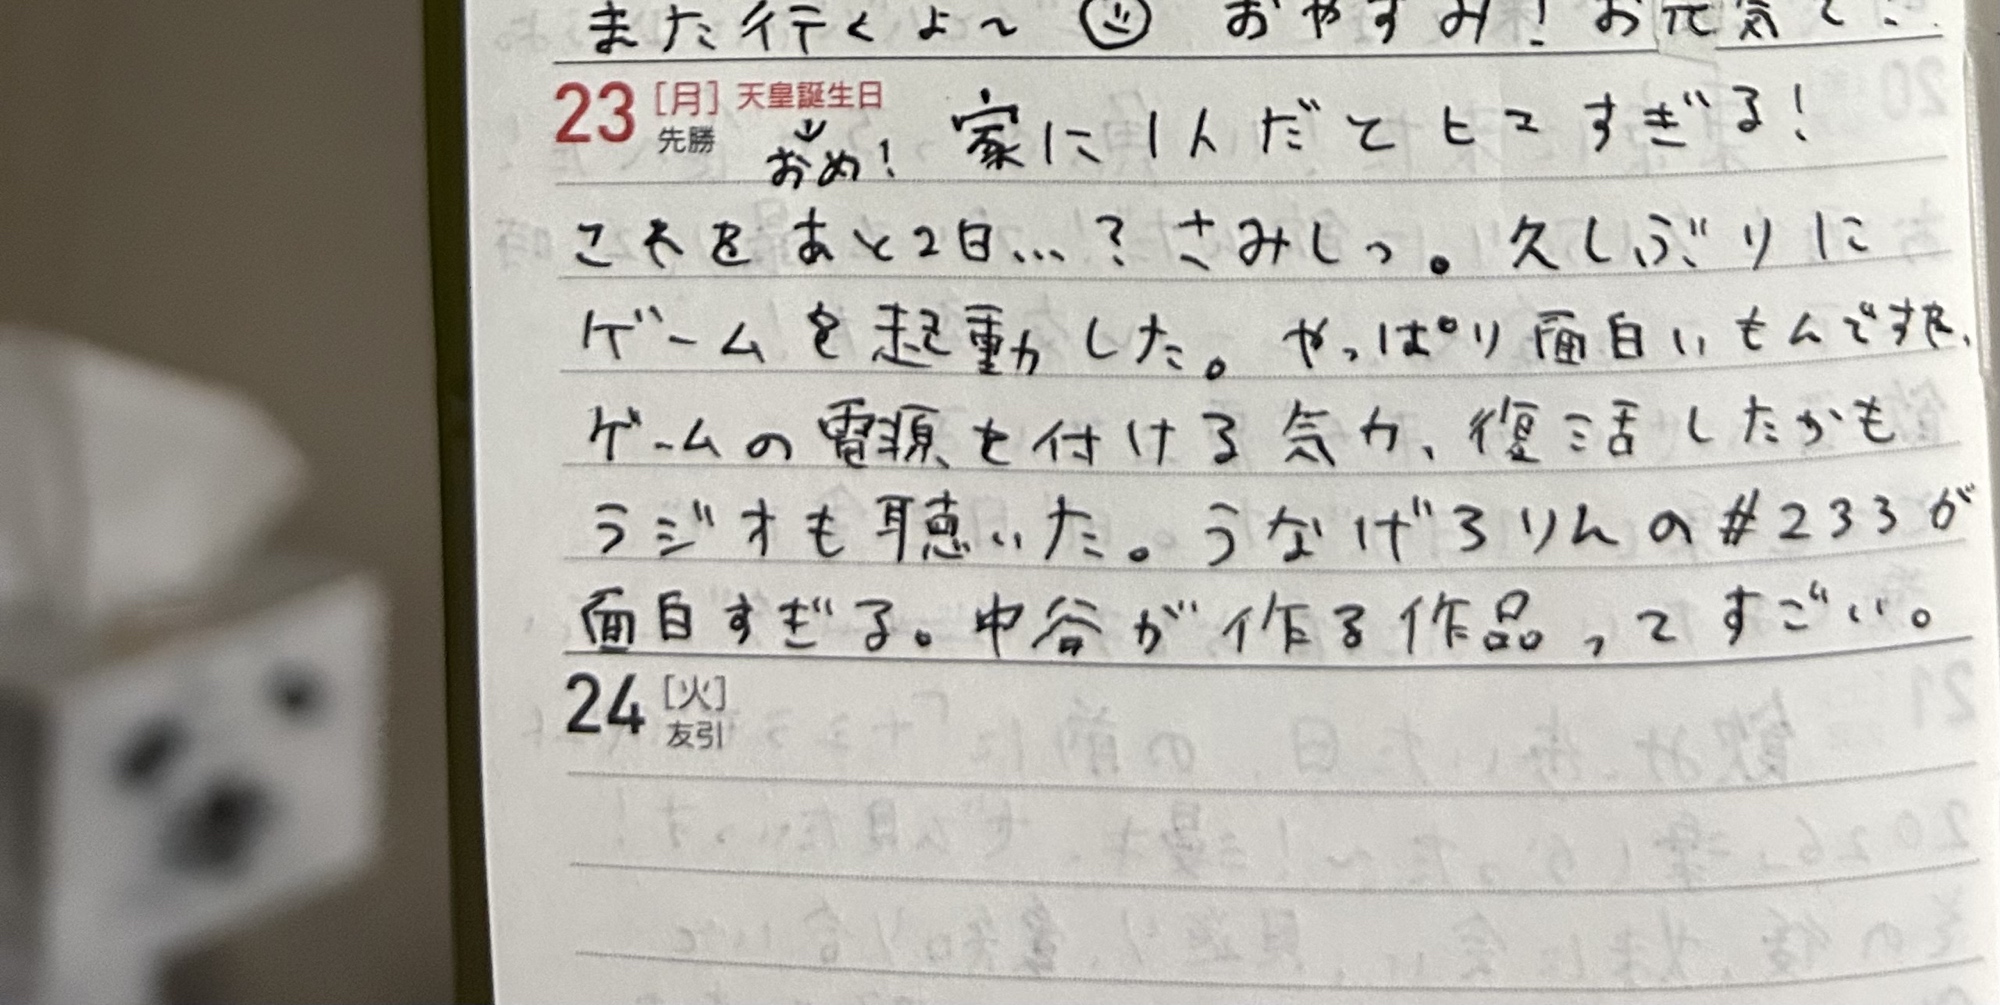 また行くよ〜 おやすみ！お元気で
23 [月] 天皇誕生日 家に1人だとヒマすぎる！
先勝 おめ！
これをあと2日…？さみしっ。久しぶりに
ゲームを起動した。やっぱり面白いもんですな、
ゲームの電源を付ける気力、復活したかも
ラジオも聴いた。うなげろりんの#233が
面白すぎる。中谷が作る作品ってすごい。
24 [火]
友引